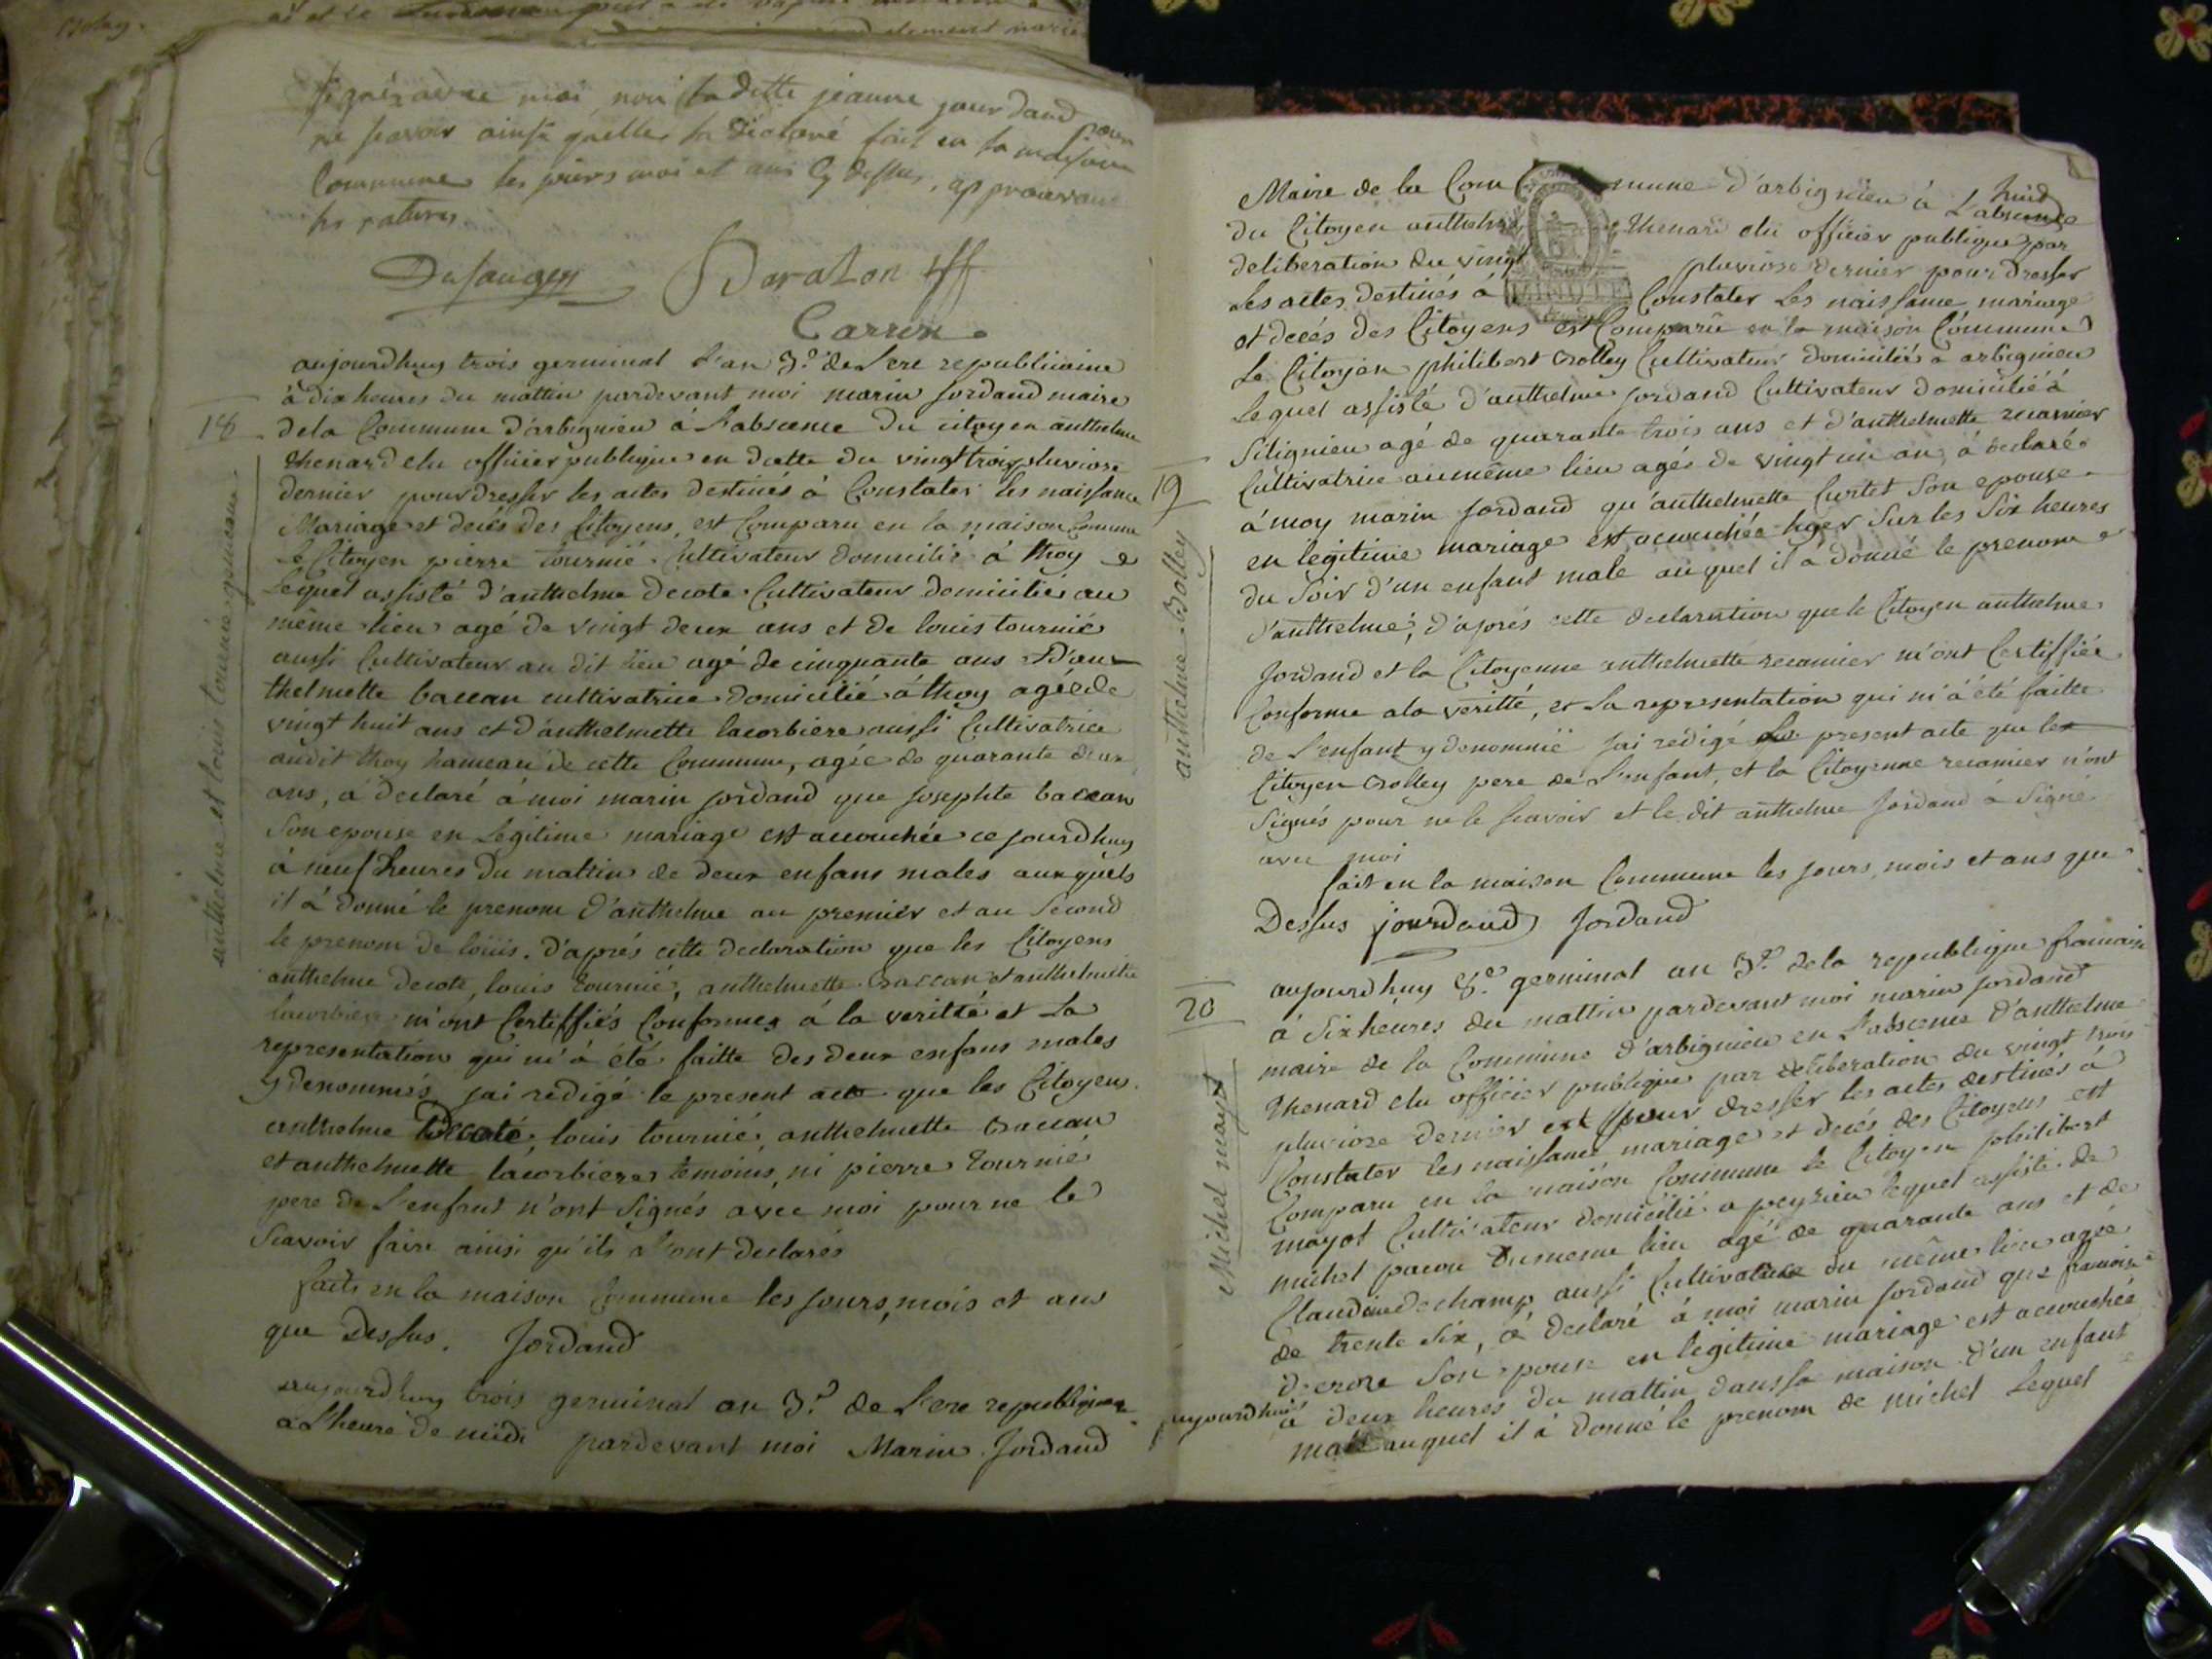 moi non la ditte jeanne jourdand pour
ne scavoir ainsi quelle la déclaré fait en la maison
Commune les jours moi et ans cy dessus, approuvant

Dufauger Baraton
Carrier
aujourdhuy trois germinal l'an 3e de l'ere republicaine
à dix heures du mattin pardevant moi marin Jordand maire
18
dela Commune d'arbignieu à l'abscence du citoyen anthelme
thenard elu officier publique en datte du vingt trois pluviose
dernier pour dresser les actes destinés à Constater les naissance
Mariage et decés des Citoyens, est Comparu en la maison Commune
Le Citoyen pierre tournié Cultivateur domicilié à thoy
Lequel assisté d'anthelme Decote Cultivateur domicilié au
même lieu agé de vingt deux ans et de louis tournié
aussi Cultivateur au dit lieu agé de cinquante ans D'an
thelmette baccan cultivatrice domicilié à thoy agée de
vingt huit ans et d'anthelmette lacorbiere aussi Cultivatrice
audit thoy hameau de cette Commune, agée de quarante deux
ans, à declaré à moi marin jordand que josephte baccan
Son epouse en Légitime mariage est accouchée ce jourdhuy
à neuf heures du mattin de deux enfans males aux quels
il à donné le prenom d'anthelme au premier et au Second
le prenom de louis. d'aprés cette declaration que les Citoyens
anthelme decote, louis tournié, anthelmette Baccan et anthelmette
lacorbiere m'ont Certiffiés Conformes à la veritté et La
representation qui m'à été faitte des deux enfans males
y denommés jai redigé le present acte que les Citoyens
anthelme Decote, louis tournié, anthelmette Baccan
et anthelmette lacorbiere temoins, ni pierre tournié
pere de l'enfant n'ont Signés avec moi pour ne le
Scavoir faire ainsi qu'ils l'ont declarés
faits en la maison Commune les jours, mois et ans
que Dessus. Jordand
anthelme et louis tournié gemeaux
aujourdhuy trois germinal an 3e de l'ere republiquene
à l'heure de midi pardevant moi Marin Jordand
Maire de la Commune d'arbignieu à L'absence
du Citoyen anthelme Thenard elu officier publique par
deliberation du vingt pluviose dernier pour dresser
Les actes destinés à Constater Les naissance mariage
MINUTE
et decés des Citoyens est Comparû en la maison Commune
Le Citoyen philibert Bolley Cultivateur domicilié à arbignieu
Lequel assisté d'anthelme jordand Cultivateur domicilié à
Silignieu agé de quarante trois ans et d'anthelmette recamier
Cultivatrice au même lieu agée de vingt un an, à declaré
19
à moy marin Jordand qu'anthelmette Curtet Son epouse
en legitime mariage est accouchée hyer Sur les Six heures
du Soir d'un enfant male au quel il à donné le prenom
d'anthelme, d'aprés cette declaration que le Citoyen anthelme
Jordand et la Citoyenne anthelmette recamier m'ont Certiffiée
Conforme a la veritté, et la representation qui m'à été faitte
de l'enfant y denommé jai redigé Le present acte que les
Citoyen Bolley pere de l'enfant, et la Citoyenne recamier n'ont
Signés pour ne le Scavoir et le dit anthelme Jordand à Signé
avec moi
fait en la maison Commune les jours, mois et ans que
Dessus jourdand Jordand
anthelme Bolley
aujourdhuy 8e germinal an 3e dela republique francaise
20
à Six heures du mattin pardevant moi marin jordand
maire de la Commune d'arbignieu en L'absence d'anthelme
Thenard elu officier publique par deliberation du vingt trois
pluviose dernier est pour dresser les actes destinés à
Constater les naissance mariage et decés des Citoyens est
Comparu en la maison Commune le Citoyen philibert
mayot Cultivateur domicilié a peyzieu lequel assisté de
michel pacon du meme lieu agé de quarante ans et de
Claudine dechamp aussi Cultivatrice du même lieu agée
de trente Six, à declaré à moi marin Jordand que francoise
decroze Son epouse en legitime mariage est accouchée
aujourdhui à deux heures du mattin dans la maison d'un enfant
male auquel il à donné le prenom de michel Lequel
Michel mayot